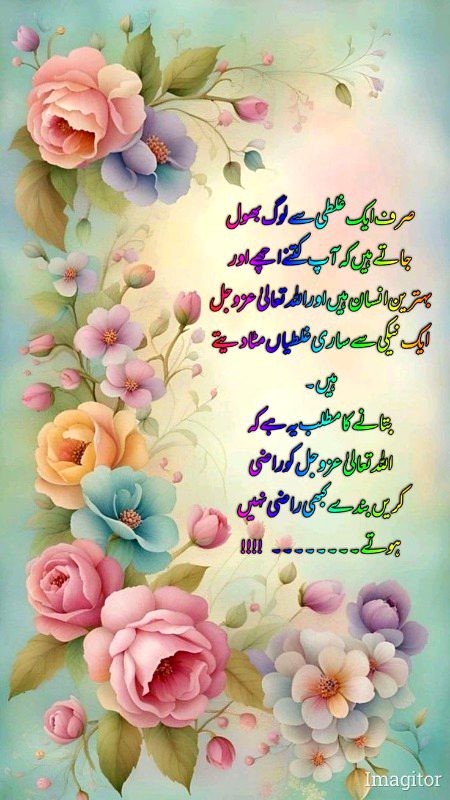 صرف ایک غلطی سے لوگ بھول
جاتے ہیں کہ آپ کتنے اچھے اور
بہترین انسان ہیں اور اللہ تعالیٰ عزوجل
ایک نیکی سے ساری غلطیاں مٹا دیتے
ہیں۔
بتانے کا مطلب یہ ہے کہ
اللہ تعالیٰ عزوجل کو راضی
کریں بندے کبھی راضی نہیں
ہوتے۔۔۔۔۔۔۔۔ !!!!
Imagitor